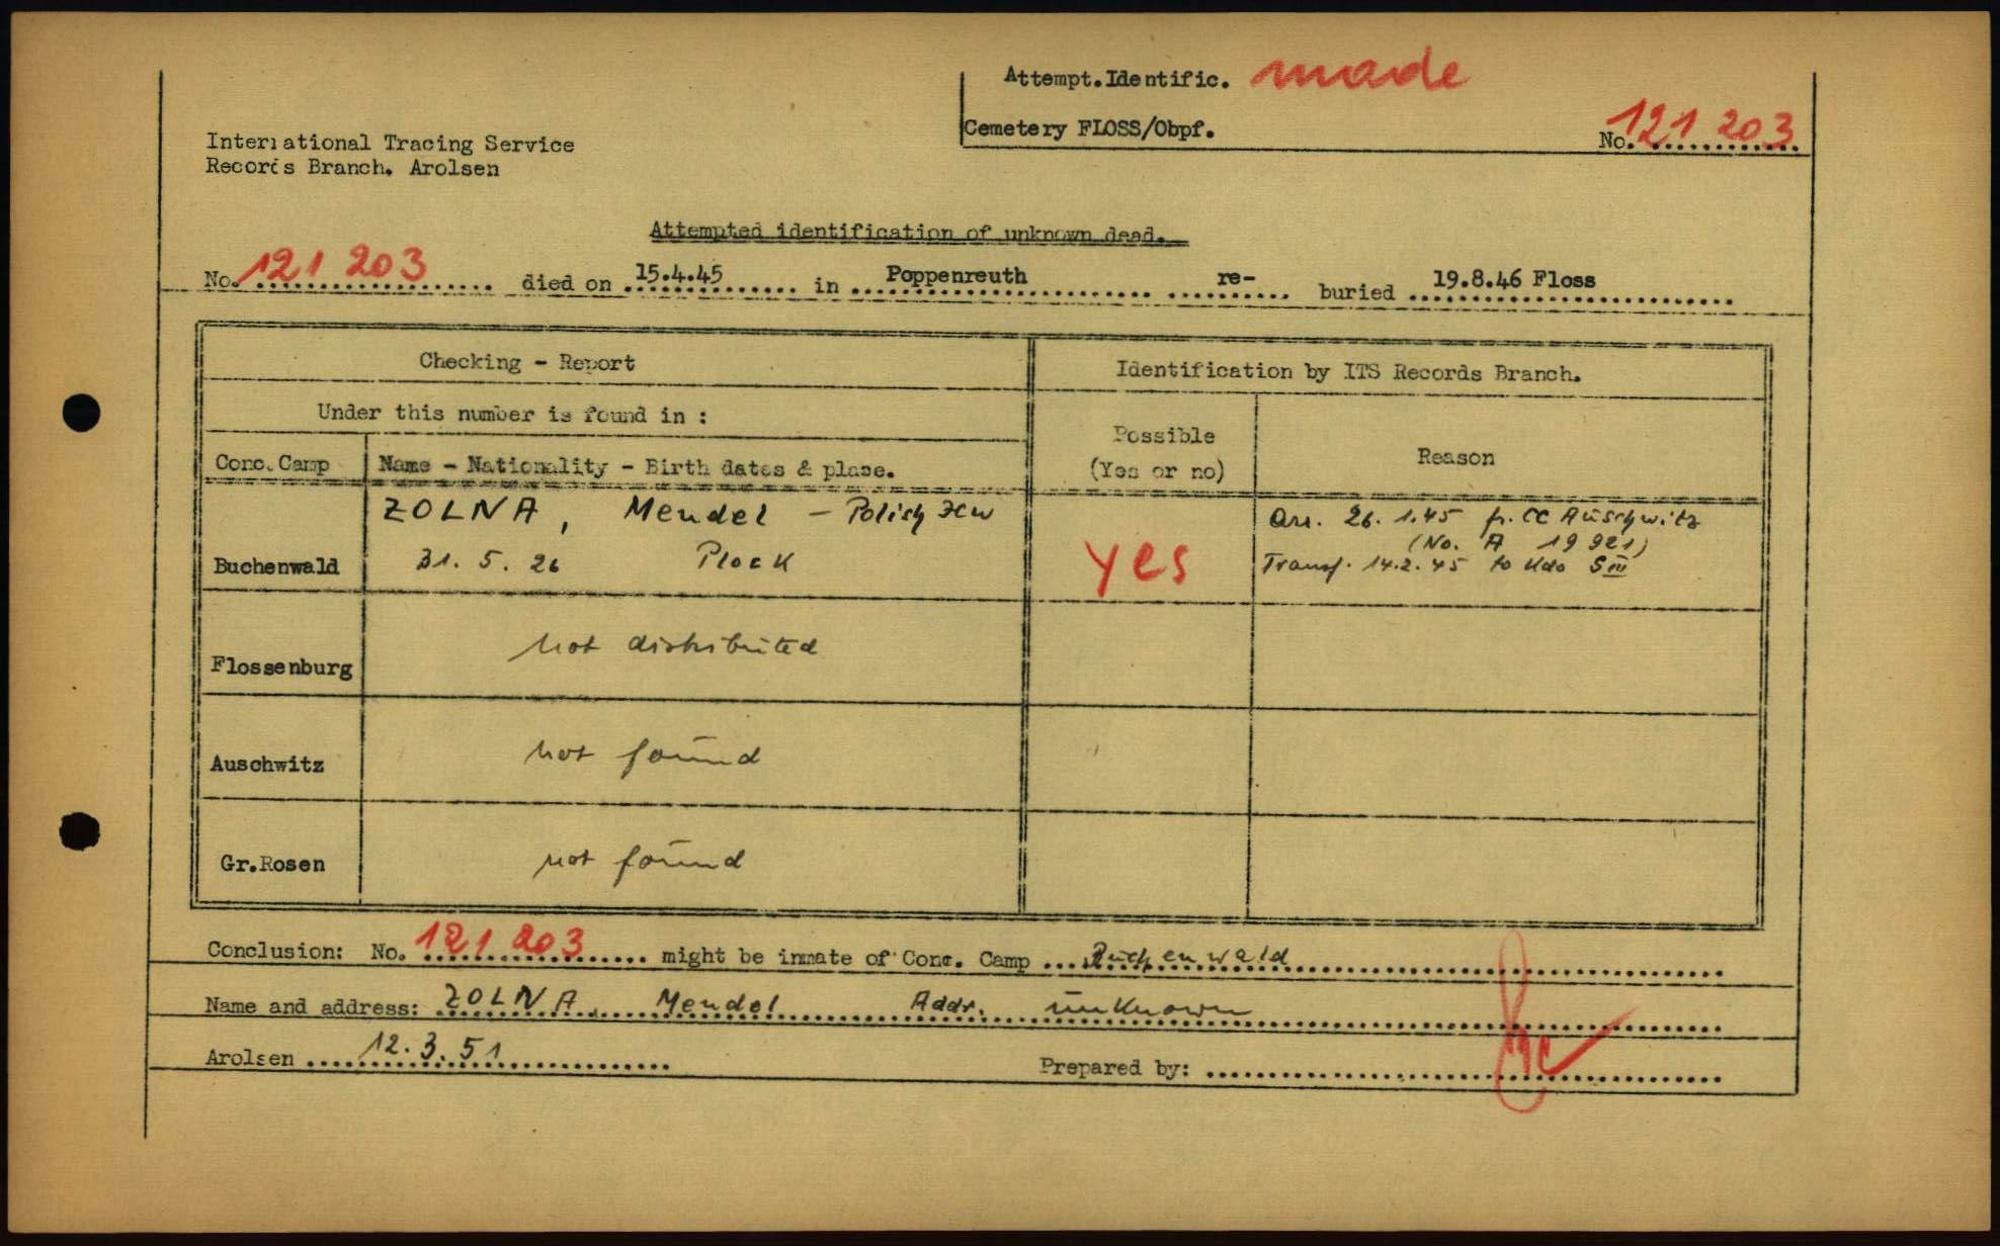 Attempt.Identific. made
Cemetery FLOSS/Obpf.
No. 121 203
International Tracing Service
Records Branch. Arolsen
Attempted identification of unknown dead.
No. 121 203 died on 15.4.45 in Poppenreuth re- buried 19.8.46 Floss
Checking - Report
Identification by ITS Records Branch.
Under this number is found in :
Possible
(Yes or no)
Reason
Conc.Camp
Name - Nationality - Birth dates & place.
Buchenwald
ZOLNA, Mendel - Polish Jew
31. 5. 26 Plock
yes
Arr. 26. 1.45 fr. CC Auschwitz
(No. A 19921)
Transf. 14.2.45 to Kdo SIII
Flossenburg
not distributed
Auschwitz
not found
Gr.Rosen
not found
Conclusion: No. 121 203 might be inmate of Conc. Camp Buchenwald
Name and address: ZOLNA, Mendel Addr. unknown
Arolsen 12. 3. 51
Prepared by: